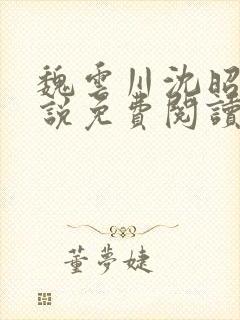 魏雲川沈昭
說免費閱讀
董夢婕